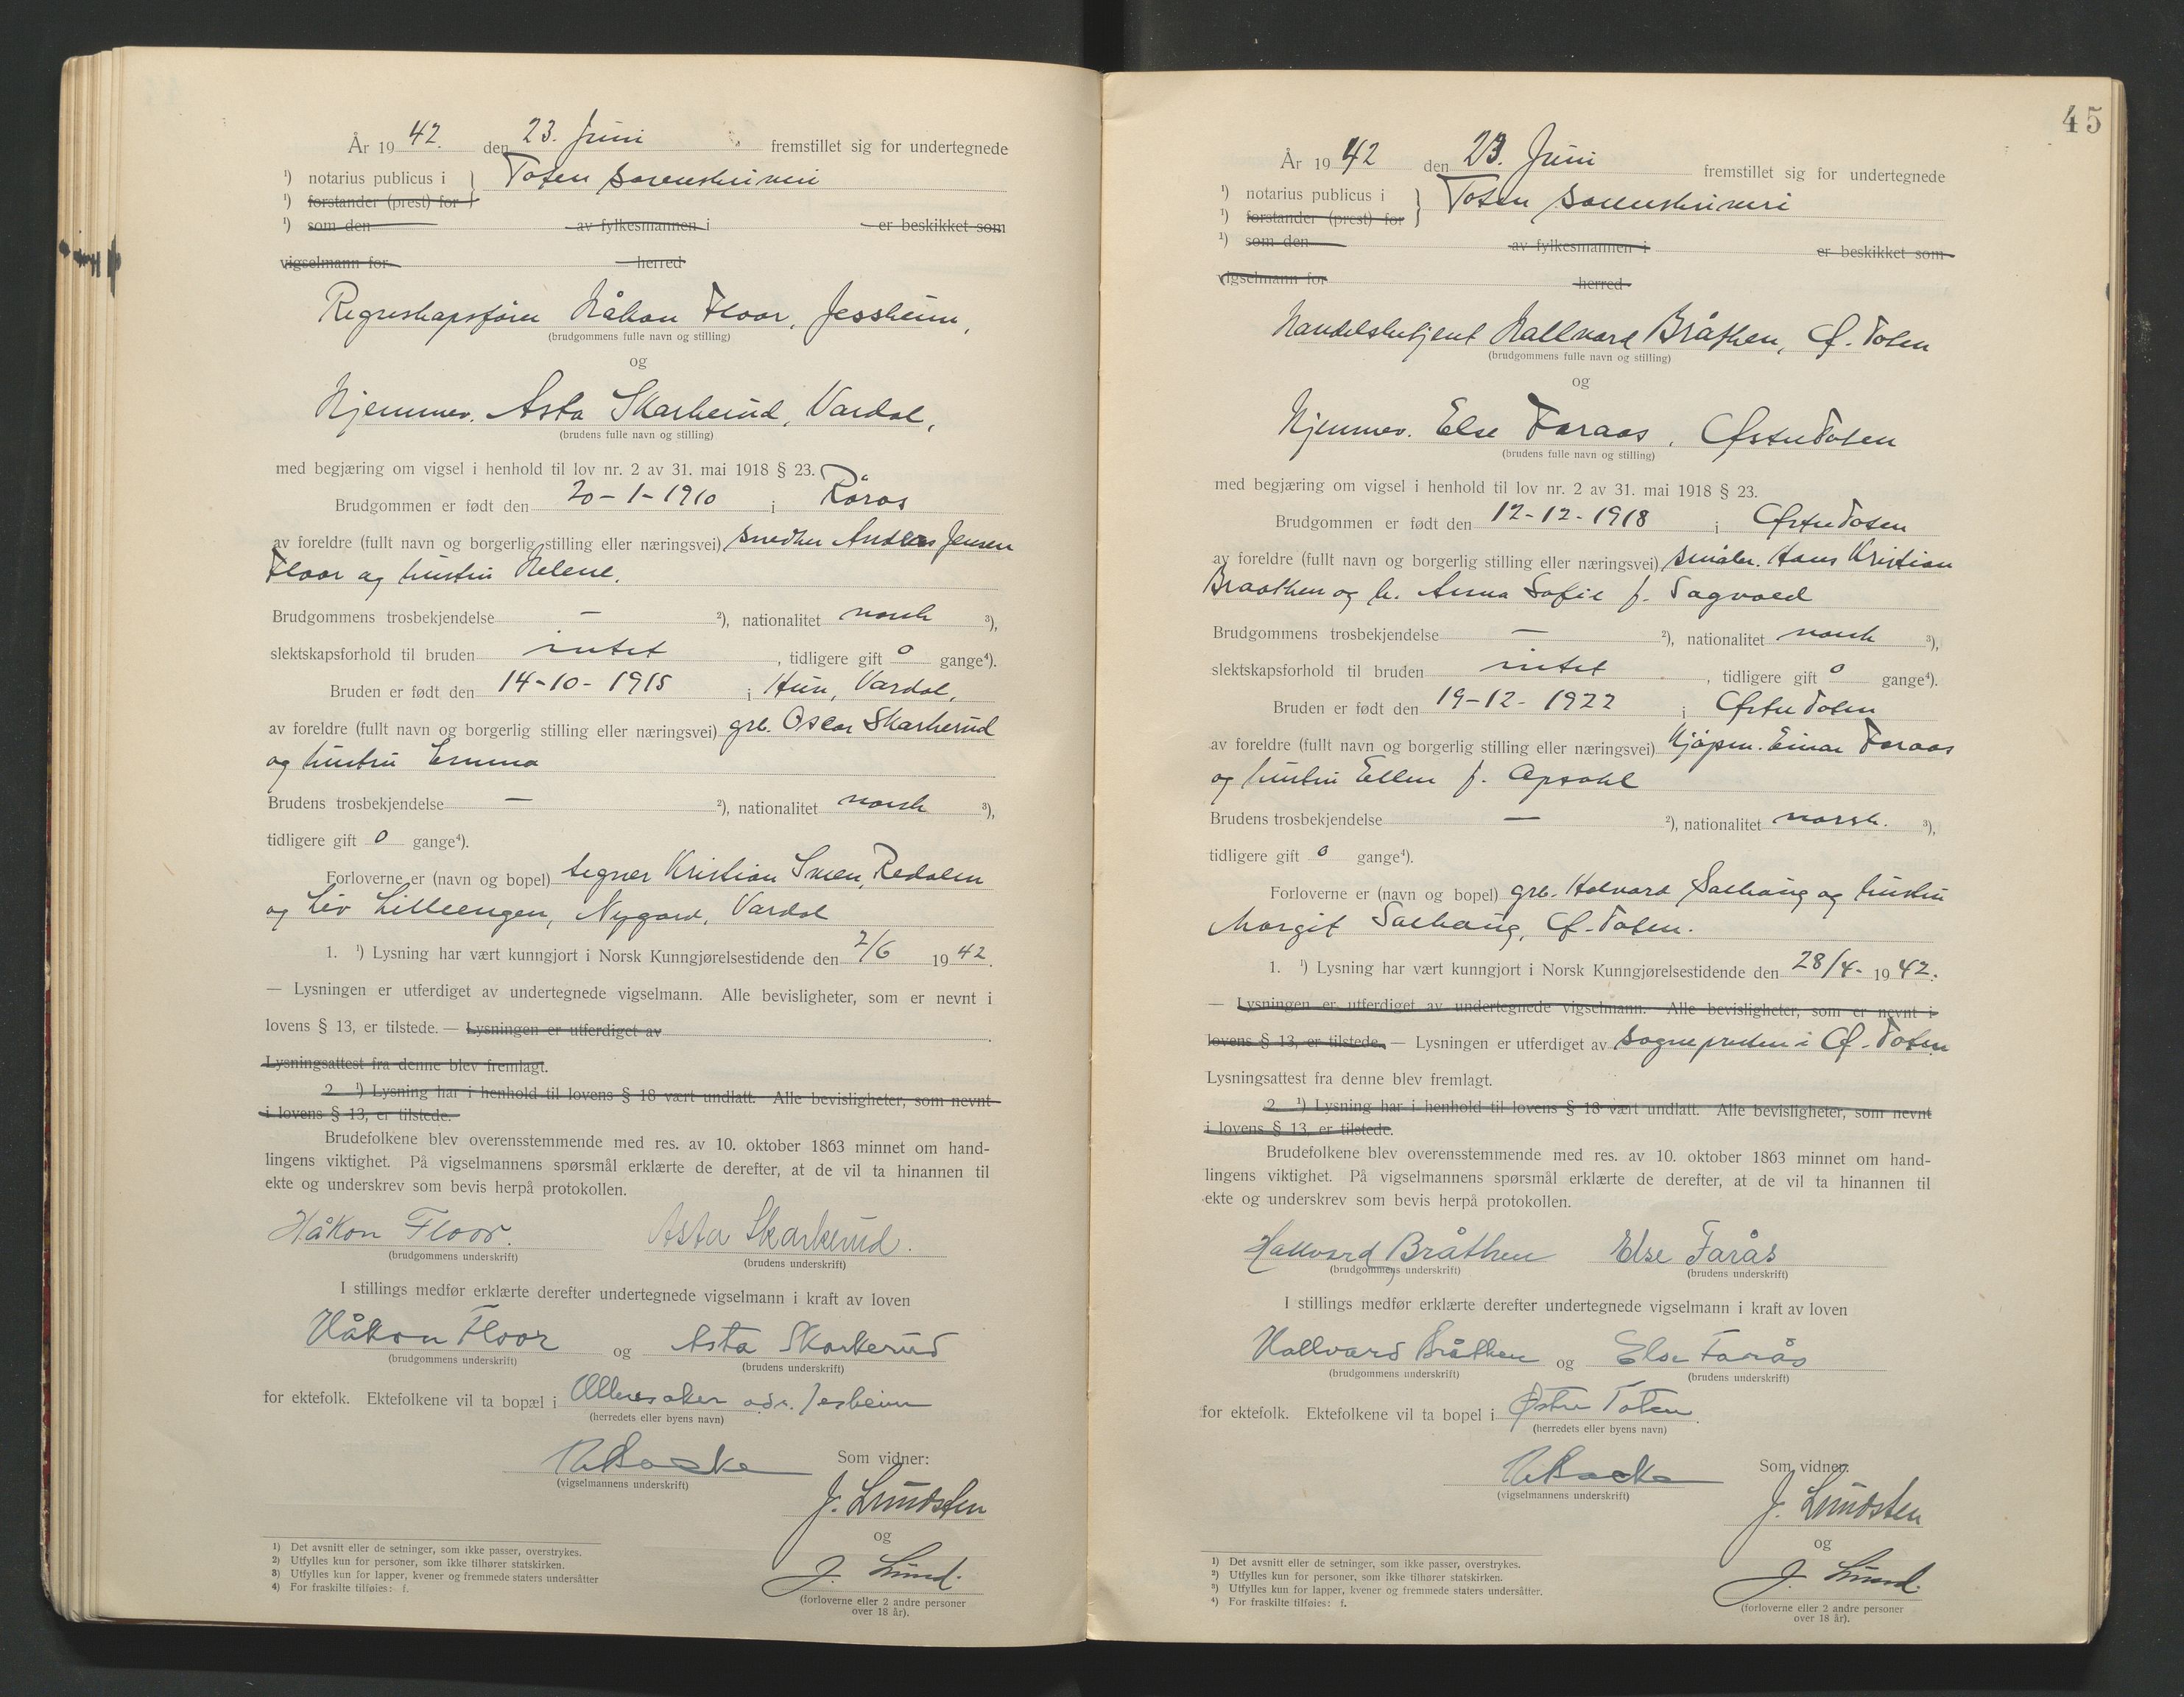 År 19 42. den 23. Juni fremstillet sig for undertegnede
¹) notarius publicus i } Toten sorenskriveri
¹) forstander (prest) for
¹) som den av fylkesmannen i er beskikket som
vigselmann for herred
Regnskapsfører Håkon Floor, Jessheim,
(brudgommens fulle navn og stilling)
og
Hjemmev. Asta Skarkerud, Vardal,
(brudens fulle navn og stilling)
med begjæring om vigsel i henhold til lov nr. 2 av 31. mai 1918 § 23.
Brudgommen er født den 20-1-1910 i Röros
av foreldre (fullt navn og borgerlig stilling eller næringsvei) snedker Anders Jensen
Floor og hustru Helene.
Brudgommens trosbekjendelse — ²), nationalitet norsk ³),
slektskapsforhold til bruden intet, tidligere gift 0 gange⁴).
Bruden er født den 14-10-1915 i Hun, Vardal,
av foreldre (fullt navn og borgerlig stilling eller næringsvei) grb. Oscar Skarkerud
og hustru Emma
Brudens trosbekjendelse — ²), nationalitet norsk ³),
tidligere gift 0 gange⁴).
Forloverne er (navn og bopel) tegner Kristian Smen, Redalen
og Liv Lilleengen, Nygard, Vardal
1. ¹) Lysning har vært kunngjort i Norsk Kunngjørelsestidende den 2/6 1942.
— Lysningen er utferdiget av undertegnede vigselmann. Alle bevisligheter, som er nevnt i
lovens § 13, er tilstede. — Lysningen er utferdiget av
Lysningsattest fra denne blev fremlagt.
2. ¹) Lysning har i henhold til lovens § 18 vært undlatt. Alle bevisligheter, som nevnt
i lovens § 13, er tilstede.
Brudefolkene blev overensstemmende med res. av 10. oktober 1863 minnet om hand-
lingens viktighet. På vigselmannens spørsmål erklærte de derefter, at de vil ta hinannen til
ekte og underskrev som bevis herpå protokollen.
Håkon Floor. Asta Skarkerud.
(brudgommens underskrift) (brudens underskrift)
I stillings medfør erklærte derefter undertegnede vigselmann i kraft av loven
Håkon Floor og Asta Skarkerud
(brudgommens underskrift) (brudens underskrift)
for ektefolk. Ektefolkene vil ta bopæl i Ullensaker adr. Jessheim
(herredets eller byens navn)
Som vidner:
(vigselmannens underskrift)
J. Lundsten
og
J. Lund.
(forloverne eller 2 andre personer
over 18 år).
1) Det avsnitt eller de setninger, som ikke passer, overstrykes.
2) Utfylles kun for personer, som ikke tilhører statskirken.
3) Utfylles kun for lapper, kvener og fremmede staters undersåtter
4) For fraskilte tilføies: f.
45
År 19 42 den 23. Juni fremstillet sig for undertegnede
¹) notarius publicus i } Toten sorenskriveri
¹) forstander (prest) for
¹) som den av fylkesmannen i er beskikket som
vigselmann for herred
Handelsbetjent Hallvard Bråthen, Ø. Toten
(brudgommens fulle navn og stilling)
og
Hjemmev. Else Faraas, Østre Toten
(brudens fulle navn og stilling)
med begjæring om vigsel i henhold til lov nr. 2 av 31. mai 1918 § 23.
Brudgommen er født den 12-12-1918 i Østre Toten
av foreldre (fullt navn og borgerlig stilling eller næringsvei) småbr. Hans Kristian
Braathen og h. Anna Sofie f. Sagvold
Brudgommens trosbekjendelse — ²), nationalitet norsk ³),
slektskapsforhold til bruden intet, tidligere gift 0 gange⁴).
Bruden er født den 19-12-1922 i Østre Toten
av foreldre (fullt navn og borgerlig stilling eller næringsvei) Kjøpm. Einar Faraas
og hustru Ellen f. Opsahl
Brudens trosbekjendelse — ²), nationalitet norsk. ³),
tidligere gift 0 gange⁴).
Forloverne er (navn og bopel) grb. Halvard Salhaug og hustru
Margit Salhaug, Ø. Toten.
1. ¹) Lysning har vært kunngjort i Norsk Kunngjørelsestidende den 28/4- 1942.
— Lysningen er utferdiget av undertegnede vigselmann. Alle bevisligheter, som er nevnt i
lovens § 13, er tilstede. — Lysningen er utferdiget av sognepresten i Ø. Toten
Lysningsattest fra denne blev fremlagt.
2. ¹) Lysning har i henhold til lovens § 18 vært undlatt. Alle bevisligheter, som nevnt
i lovens § 13, er tilstede.
Brudefolkene blev overensstemmende med res. av 10. oktober 1863 minnet om hand-
lingens viktighet. På vigselmannens spørsmål erklærte de derefter, at de vil ta hinannen til
ekte og underskrev som bevis herpå protokollen.
Hallvard Bråthen Else Farås
(brudgommens underskrift) (brudens underskrift)
I stillings medfør erklærte derefter undertegnede vigselmann i kraft av loven
Hallvard Bråthen og Else Farås
(brudgommens underskrift) (brudens underskrift)
for ektefolk. Ektefolkene vil ta bopel i Østre Toten.
(herredets eller byens navn)
Som vidner:
(vigselmannens underskrift)
J. Lundsten
og
J. Lund.
(forloverne eller 2 andre personer
over 18 år).
1) Det avsnitt eller de setninger, som ikke passer, overstrykes.
2) Utfylles kun for personer, som ikke tilhører statskirken.
3) Utfylles kun for lapper, kvener og fremmede staters undersåtter.
4) For fraskilte tilføies: f.